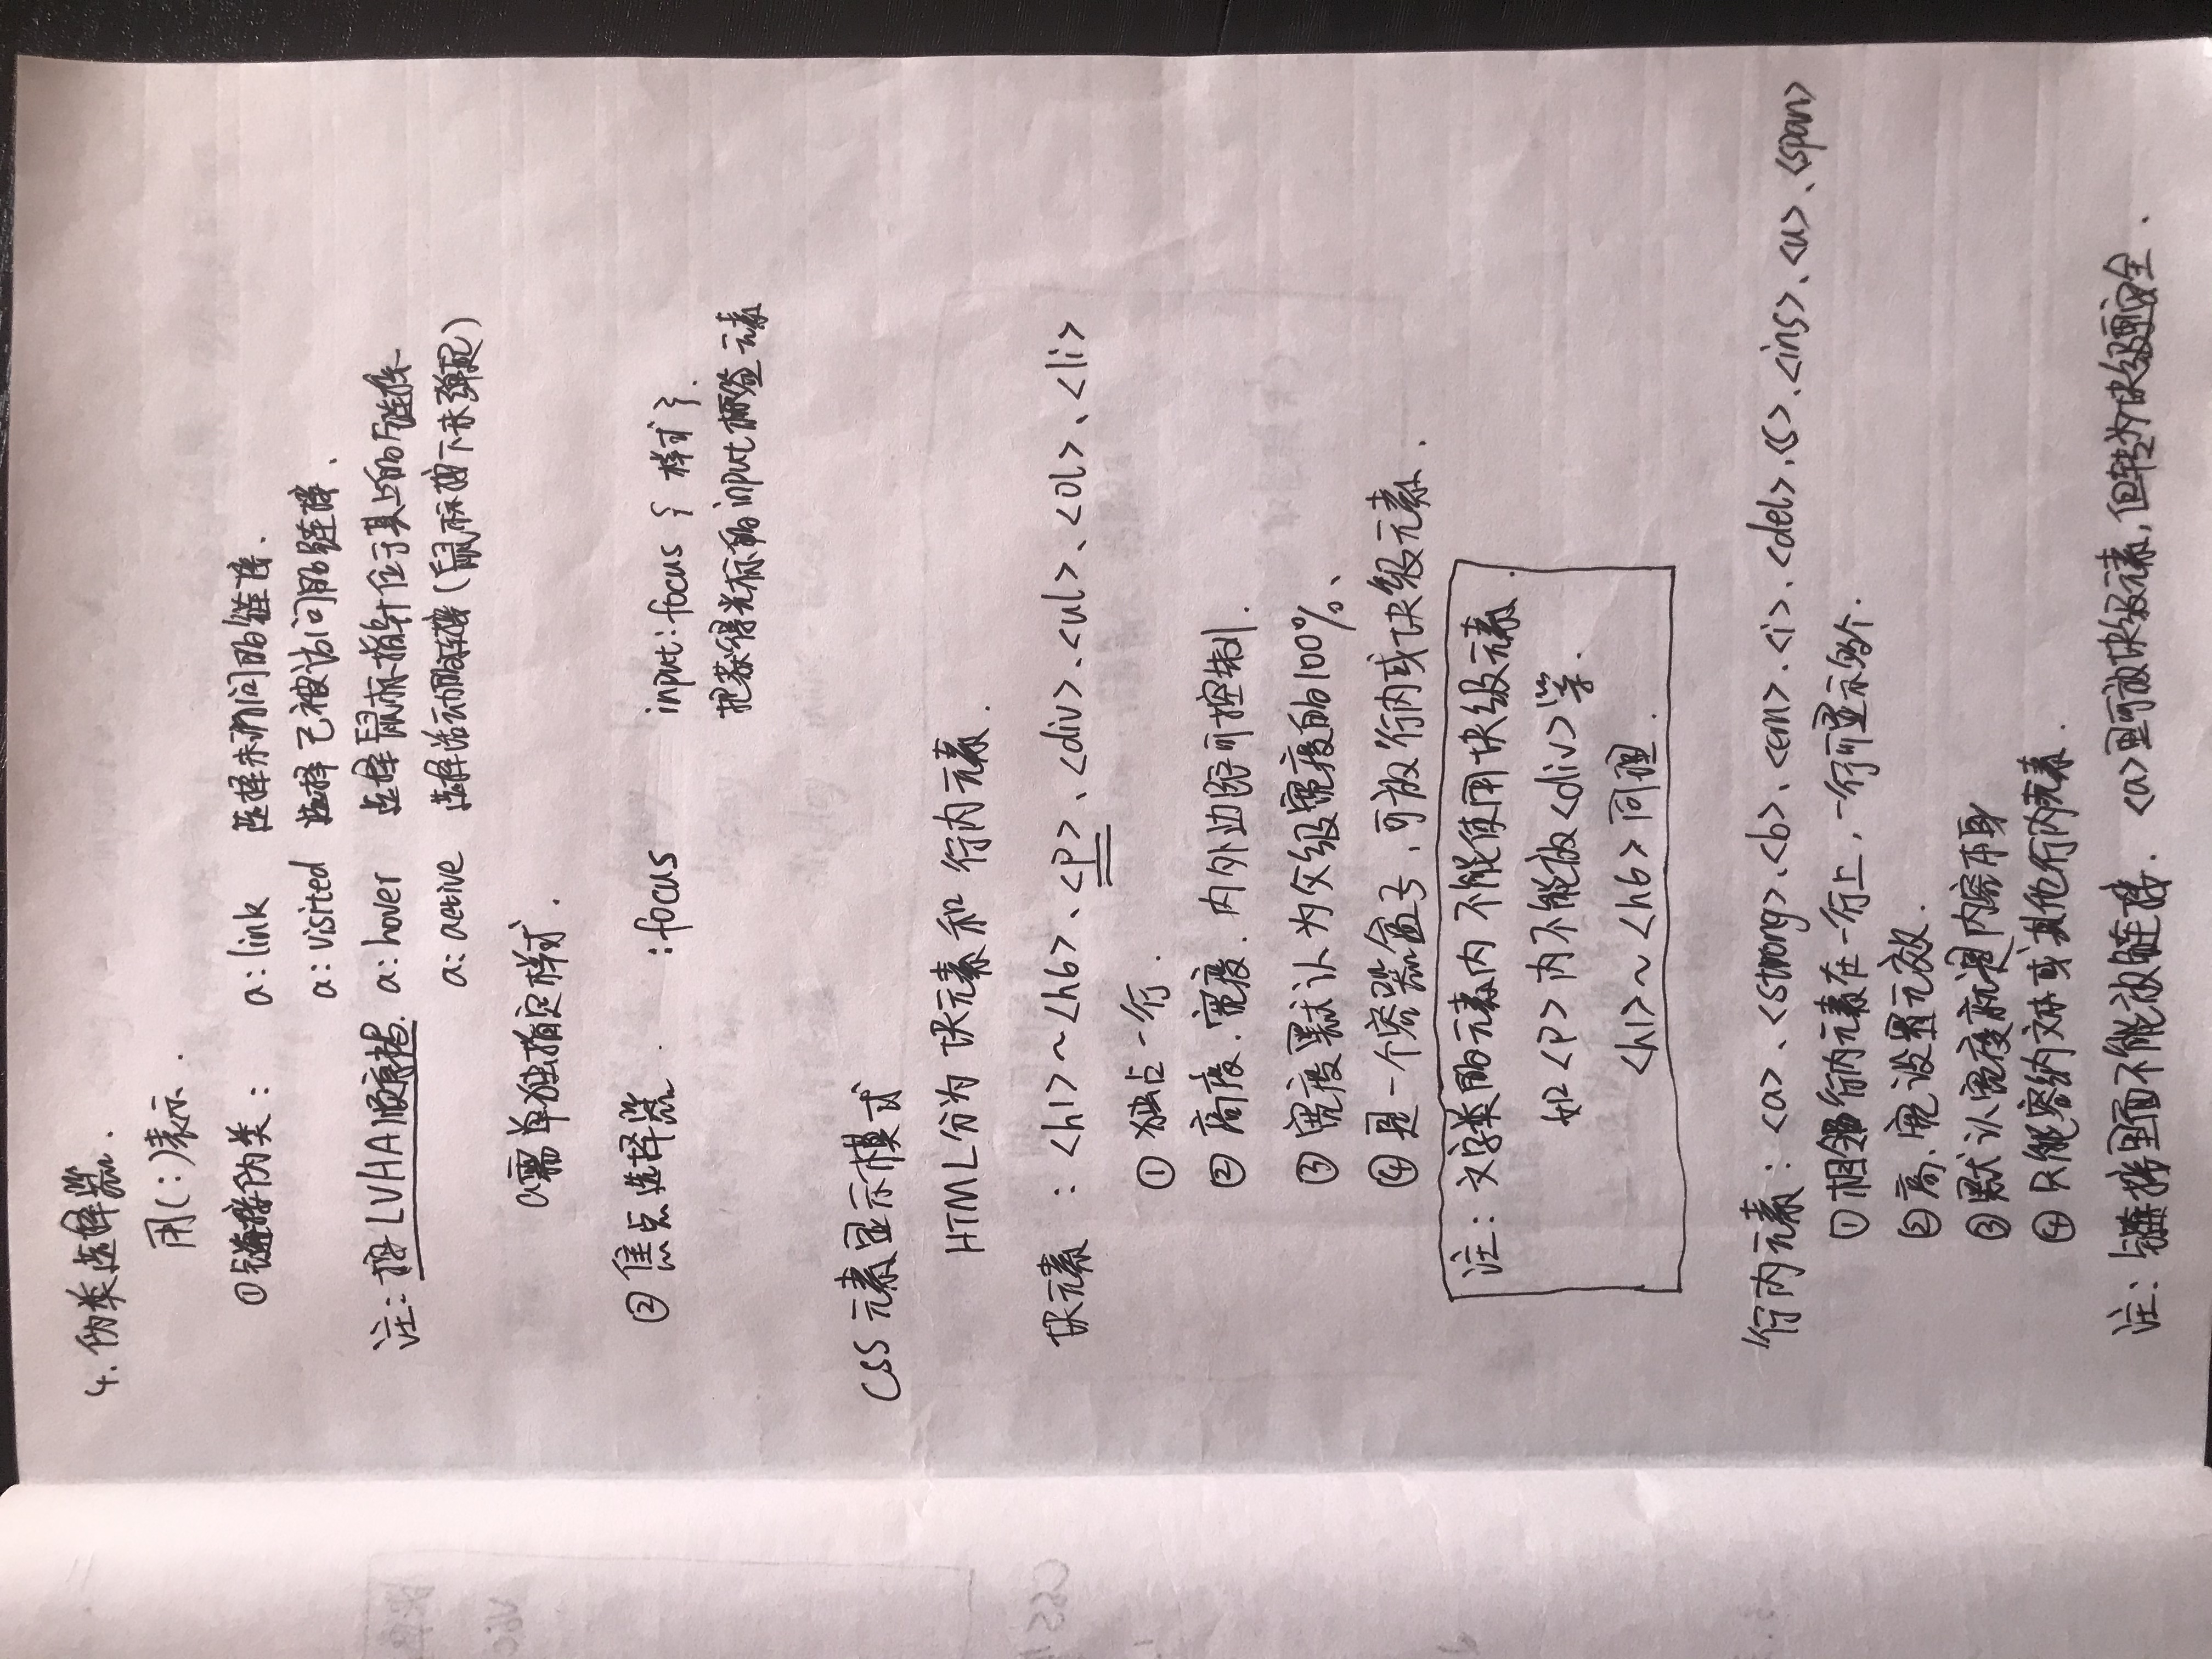 4. 伪类选择器.
用(:)表示.
①链接伪类: a:link 选择未访问的链接.
a:visited 选择已被访问的链接.
注:按LVHA顺序 a:hover 选择鼠标指针位于其上的链接
a:active 选择活动的链接(鼠标按下未弹起)
a需单独指定样式.
②焦点选择器. :focus input:focus { 样式 }.
把获得光标的input标签元素
CSS 元素显示模式
HTML分为 块元素和 行内元素.
块元素 : <h1>~<h6>、<p>、<div>、<ul>、<ol>、<li>
① 独占一行.
② 高度、宽度、内外边距可控制.
③ 宽度默认为父级宽度的100%、
④ 是一个容器盒子,可放行内或块级元素.
注: 文字类的元素内 不能使用块级元素.
如<p>内不能放<div>等.
<h1>~<h6>同理.
行内元素: <a>、<strong>、<b>、<em>、<i>、<del>、<s>、<ins>、<u>、<span>
①相邻行内元素在一行上,一行可显示多个.
②高、宽设置无效.
③默认宽度就是内容本身
④只能容纳文本或其他行内元素.
注: 链接里面不能放链接. <a>里可放块级元素,但转为块级更安全.